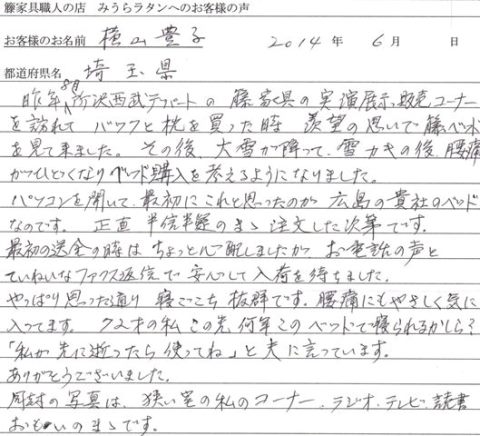 籐家具職人の店 みうらラタンへのお客様の声
お客様のお名前 横山 豊子 2014年 6月 日
都道府県名 埼玉県
昨年8月所沢西武デパートの籐家具の実演展示、販売コーナー
を訪れて バックと枕を買った時 羨望の思いで籐ベット
を見て来ました。その後、大雪が降って、雪カキの後、腰痛
がひどくなりベッド購入を考えるようになりました。
パソコンを開いて、最初にこれと思ったのが 広島の貴社のベッド
なのです。正直 半信半疑のまゝ注文した次第です。
最初の送金の時は ちょっと心配しましたが お電話の声と
ていねいなファクス返信で 安心して入荷を待ちました。
やっぱり思った通り 寝ごこち抜群です。腰痛にもやさしく気に
入ってます。72才の私 この先何年このベッドで寝られるかしら?
「私が先に逝ったら使ってね」と夫に言っています。
ありがとうございました。
同封の写真は、狭い室の私のコーナー、ラジオ、テレビ、読書
おもいのまゝです。